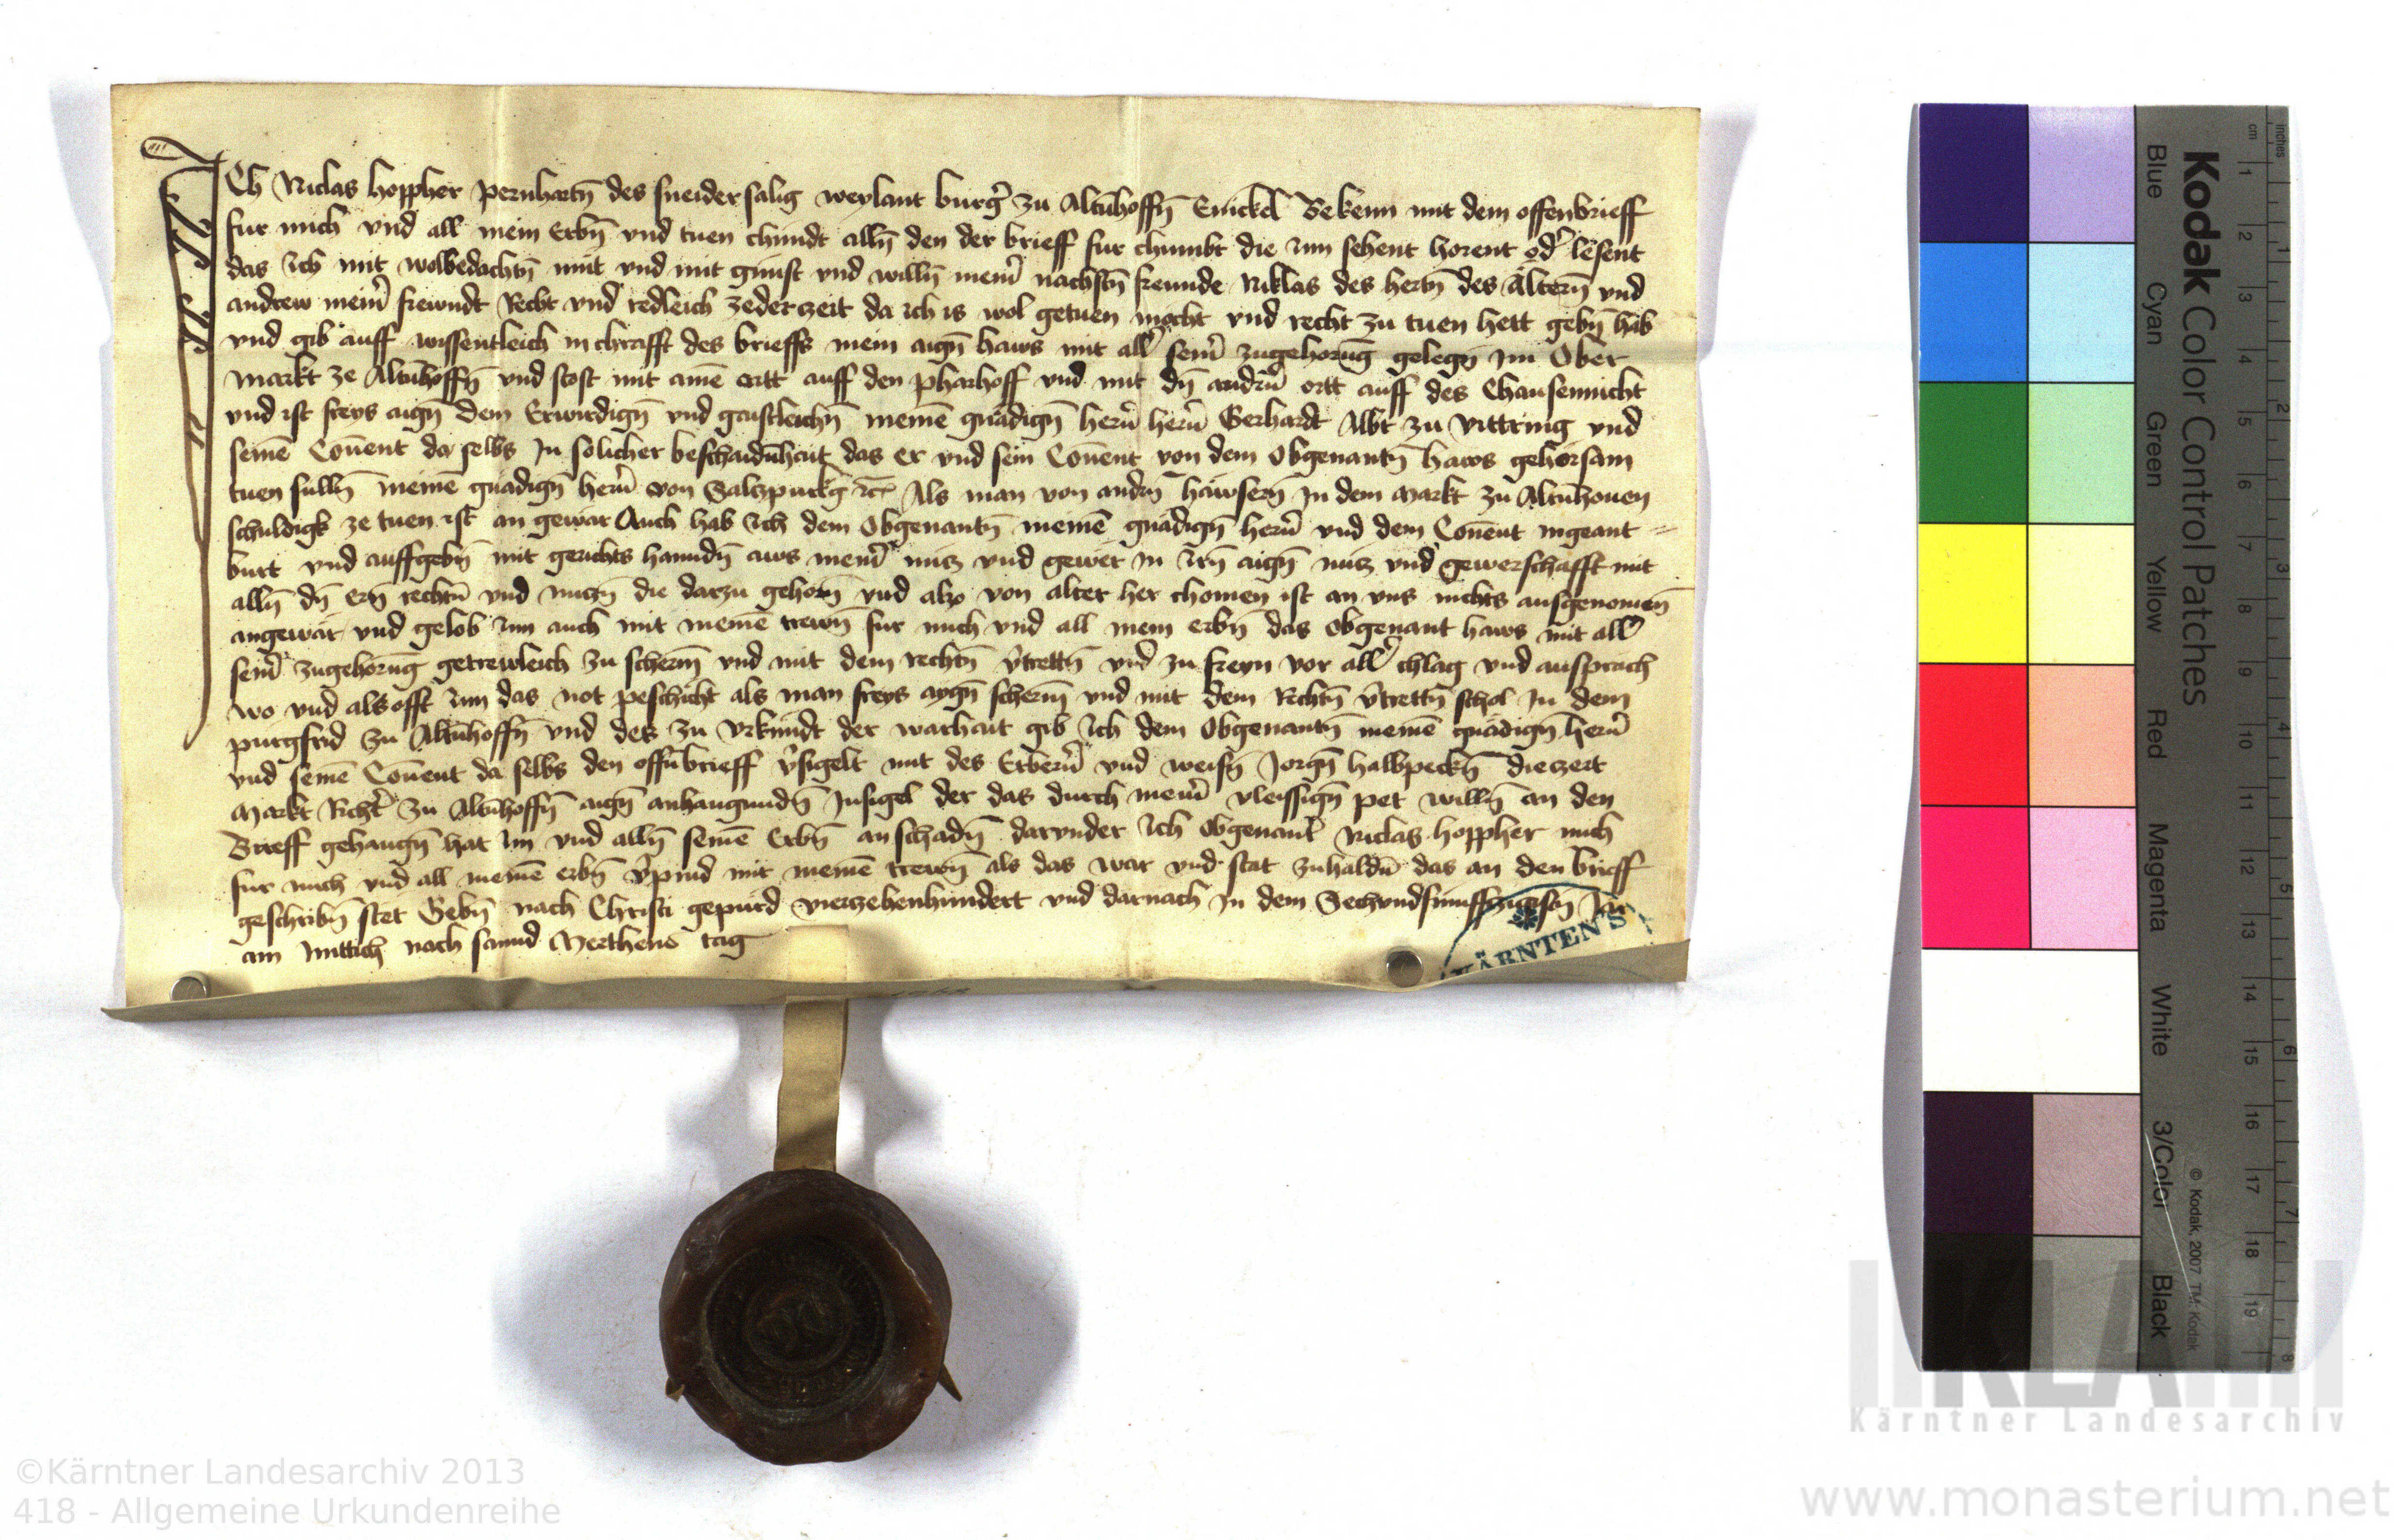 ICh Niclas hoppher pernhartn̄ des sneider salig weylant burgˀ zu Altn̄hoffn̄ Enickel Bekenn mit dem offenbrieff
fur mich vnd all mein Erbn̄ vnd tuen chundt alln̄ den der brieff fur chumbt die inn sehent horent odˀ lesent
das ich mit wolbedachtn̄ mut vnd mit gunst vnd willn̄ meinˀ nachstn̄ freunde Niklas des hertn̄ des Altern̄ vnd
andrew meinˀ frewndt Recht vnd redleich zeder zeit da ich is wol getuen mocht vnd recht zu tuen hett gebn̄ hab
vnd gib auff wissentleich in chrafft des brieffs mein aign̄ haws mit allˀ seinˀ zugehorūg gelegn̄ im Ober
markt ze Altn̄hoffn̄ vnd stost mit aimē ortt auff den pharhoff vnd mit dn̄ andrn̄ ortt auff des Chausennicht
vnd ist freys aign̄ dem Erwirdign̄ vnd gaistleichn̄ meinē gnadign̄ hern̄ hern̄ Gerhardt Abt zu vittring vnd
seinē Conuent da selbs In solicher beschaidn̄hait das er vnd sein Conuent von dem Obgenantn̄ haws gehorsam
tuen sulln̄ meinē gnadign̄ hern̄ von Saltzpurkg etc Als man von andrn̄ hawsern̄ In dem Markt zu Altn̄houen
schuldigk ze tuen ist an geuar Auch hab ich dem Obgenantn̄ meinē gnadign̄ hern̄ vnd dem Conuent ingeant=
burt vnd auffgebn̄ mit gerichts hanndn̄ aws meinˀ nutz vnd gewer in irn̄ aign̄ nutz vnd gewerschafft mit
alln̄ dn̄ ern̄ rechtn̄ vnd nutzn̄ die darzu gehorn̄ vnd also von alter her chomen ist an vns nichts ausgenomen̄
angewar vnd gelob inn auch mit meinē trewn̄ fur mich vnd all mein erbn̄ das obgenant haws mit allˀ
seinˀ zugehorūg getrewleich zu scherm̄ vnd mit dem rechtn̄ vˀtrettn̄ vnd zu freyn vor allˀ chlag vnd ansprach
wo vnd als offt inn das not peschicht als man freys aygn̄ scherm̄ vnd mit dem Rechtn̄ vˀtrettn̄ schol In dem
purgfrid zu Altn̄hoffn̄ vnd des zu vrkundt der warhait gib ich dem Obgenantn̄ meinē gnadign̄ hern̄
vnd seinē Conuent da selbs den offn̄brieff vˀsigelt mit des Erbern̄ vnd weisn̄ Jorgn̄ halbpeckn̄ die zeit
Markt Richtˀ zu Altn̄hoffn̄ aign̄ anhangundn̄ Insigel der das durch meinˀ vleissign̄ pet willn̄ an den
Brieff gehangn̄ hat im vnd alln̄ seinē Erbn̄ an schadn̄ darvnder ich obgenantˀ Niclas hoppher mich
fur mich vnd all meinē erbn̄ vˀpind mit meinē trewn̄ als das war vnd stat zuhaldn̄ das an den brieff
geschribn̄ stet Gebn̄ nach Christi gepurd vierzehenhundert vnd darnach in dem Sechvndfunffzigistn̄ Jar
am mittich nach sannd Merthens tag
KÄRNTEN'S
Kodak Color Control Patches
Blue Cyan Green Yellow Red Magenta White 3/Color Black
© Kodak, 2007 TM: Kodak
inches 1 2 3 4 5 6 7 8
cm 1 2 3 4 5 6 7 8 9 10 11 12 13 14 15 16 17 18 19
KLA
Kärntner Landesarchiv
©Kärntner Landesarchiv 2013
418 - Allgemeine Urkundenreihe
www.monasterium.net